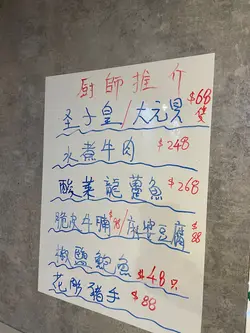 廚師推介
圣子皇/大元貝 $68隻
水煮牛肉 $248
酸菜龍躉魚 $268
脆皮牛腩$98/麻婆豆腐 $88
椒鹽鮑魚 $48只
花彫豬手 $88